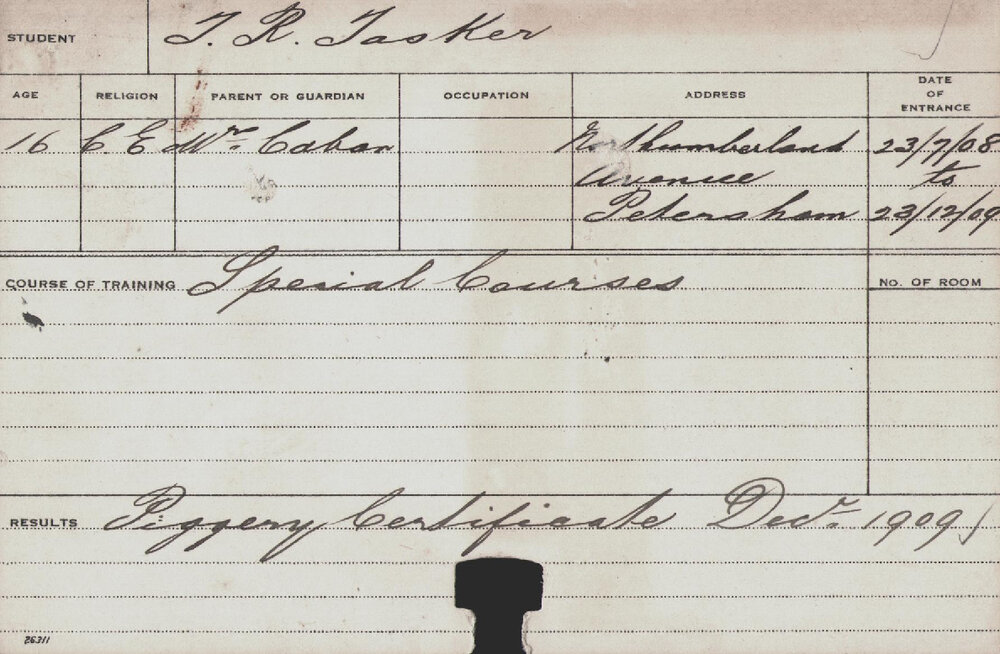 STUDENT T. R. Tasker
AGE RELIGION PARENT OR GUARDIAN OCCUPATION ADDRESS DATE OF ENTRANCE
16 C. E Mr. Caban Northumberland 23/7/08
Avenue to
Petersham 23/12/09
COURSE OF TRAINING Special Courses No. OF ROOM
RESULTS Piggery Certificate Decr. 1909
26311